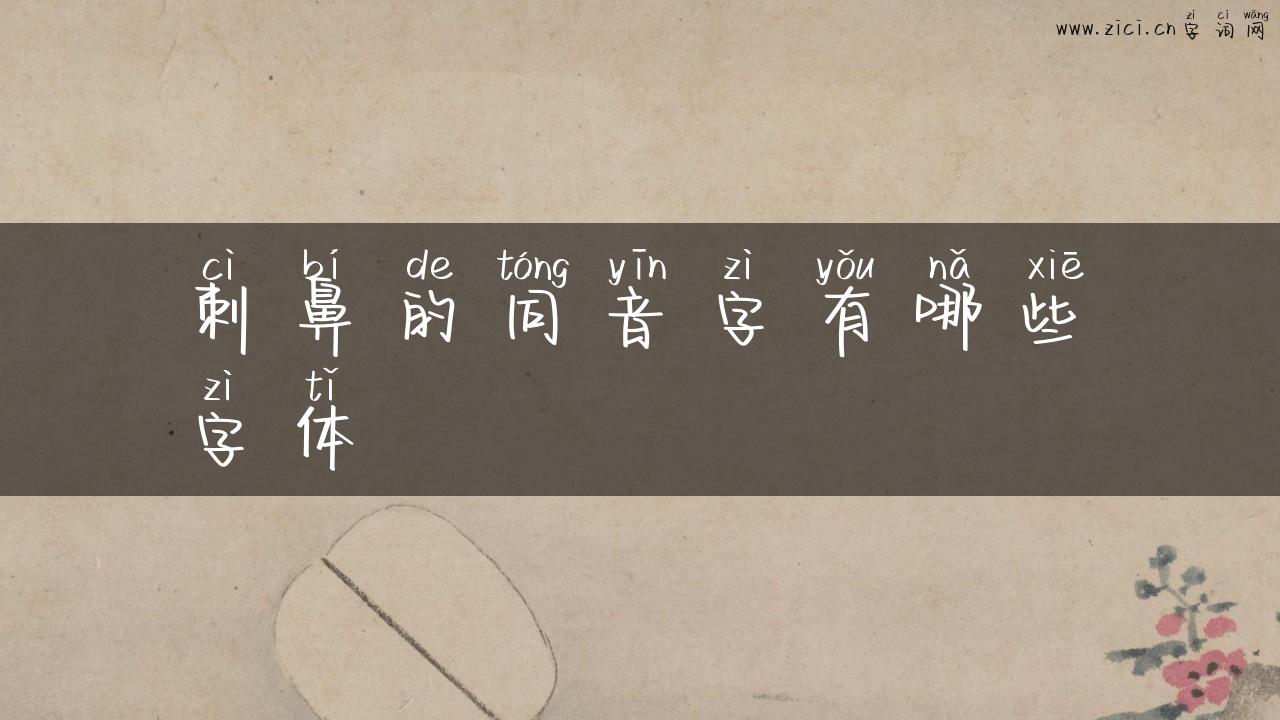 zì cí wǎng
www.zici.cn 字词网
cì bí de tóng yīn zì yǒu nǎ xiē
刺鼻的同音字有哪些
zì tǐ
字体